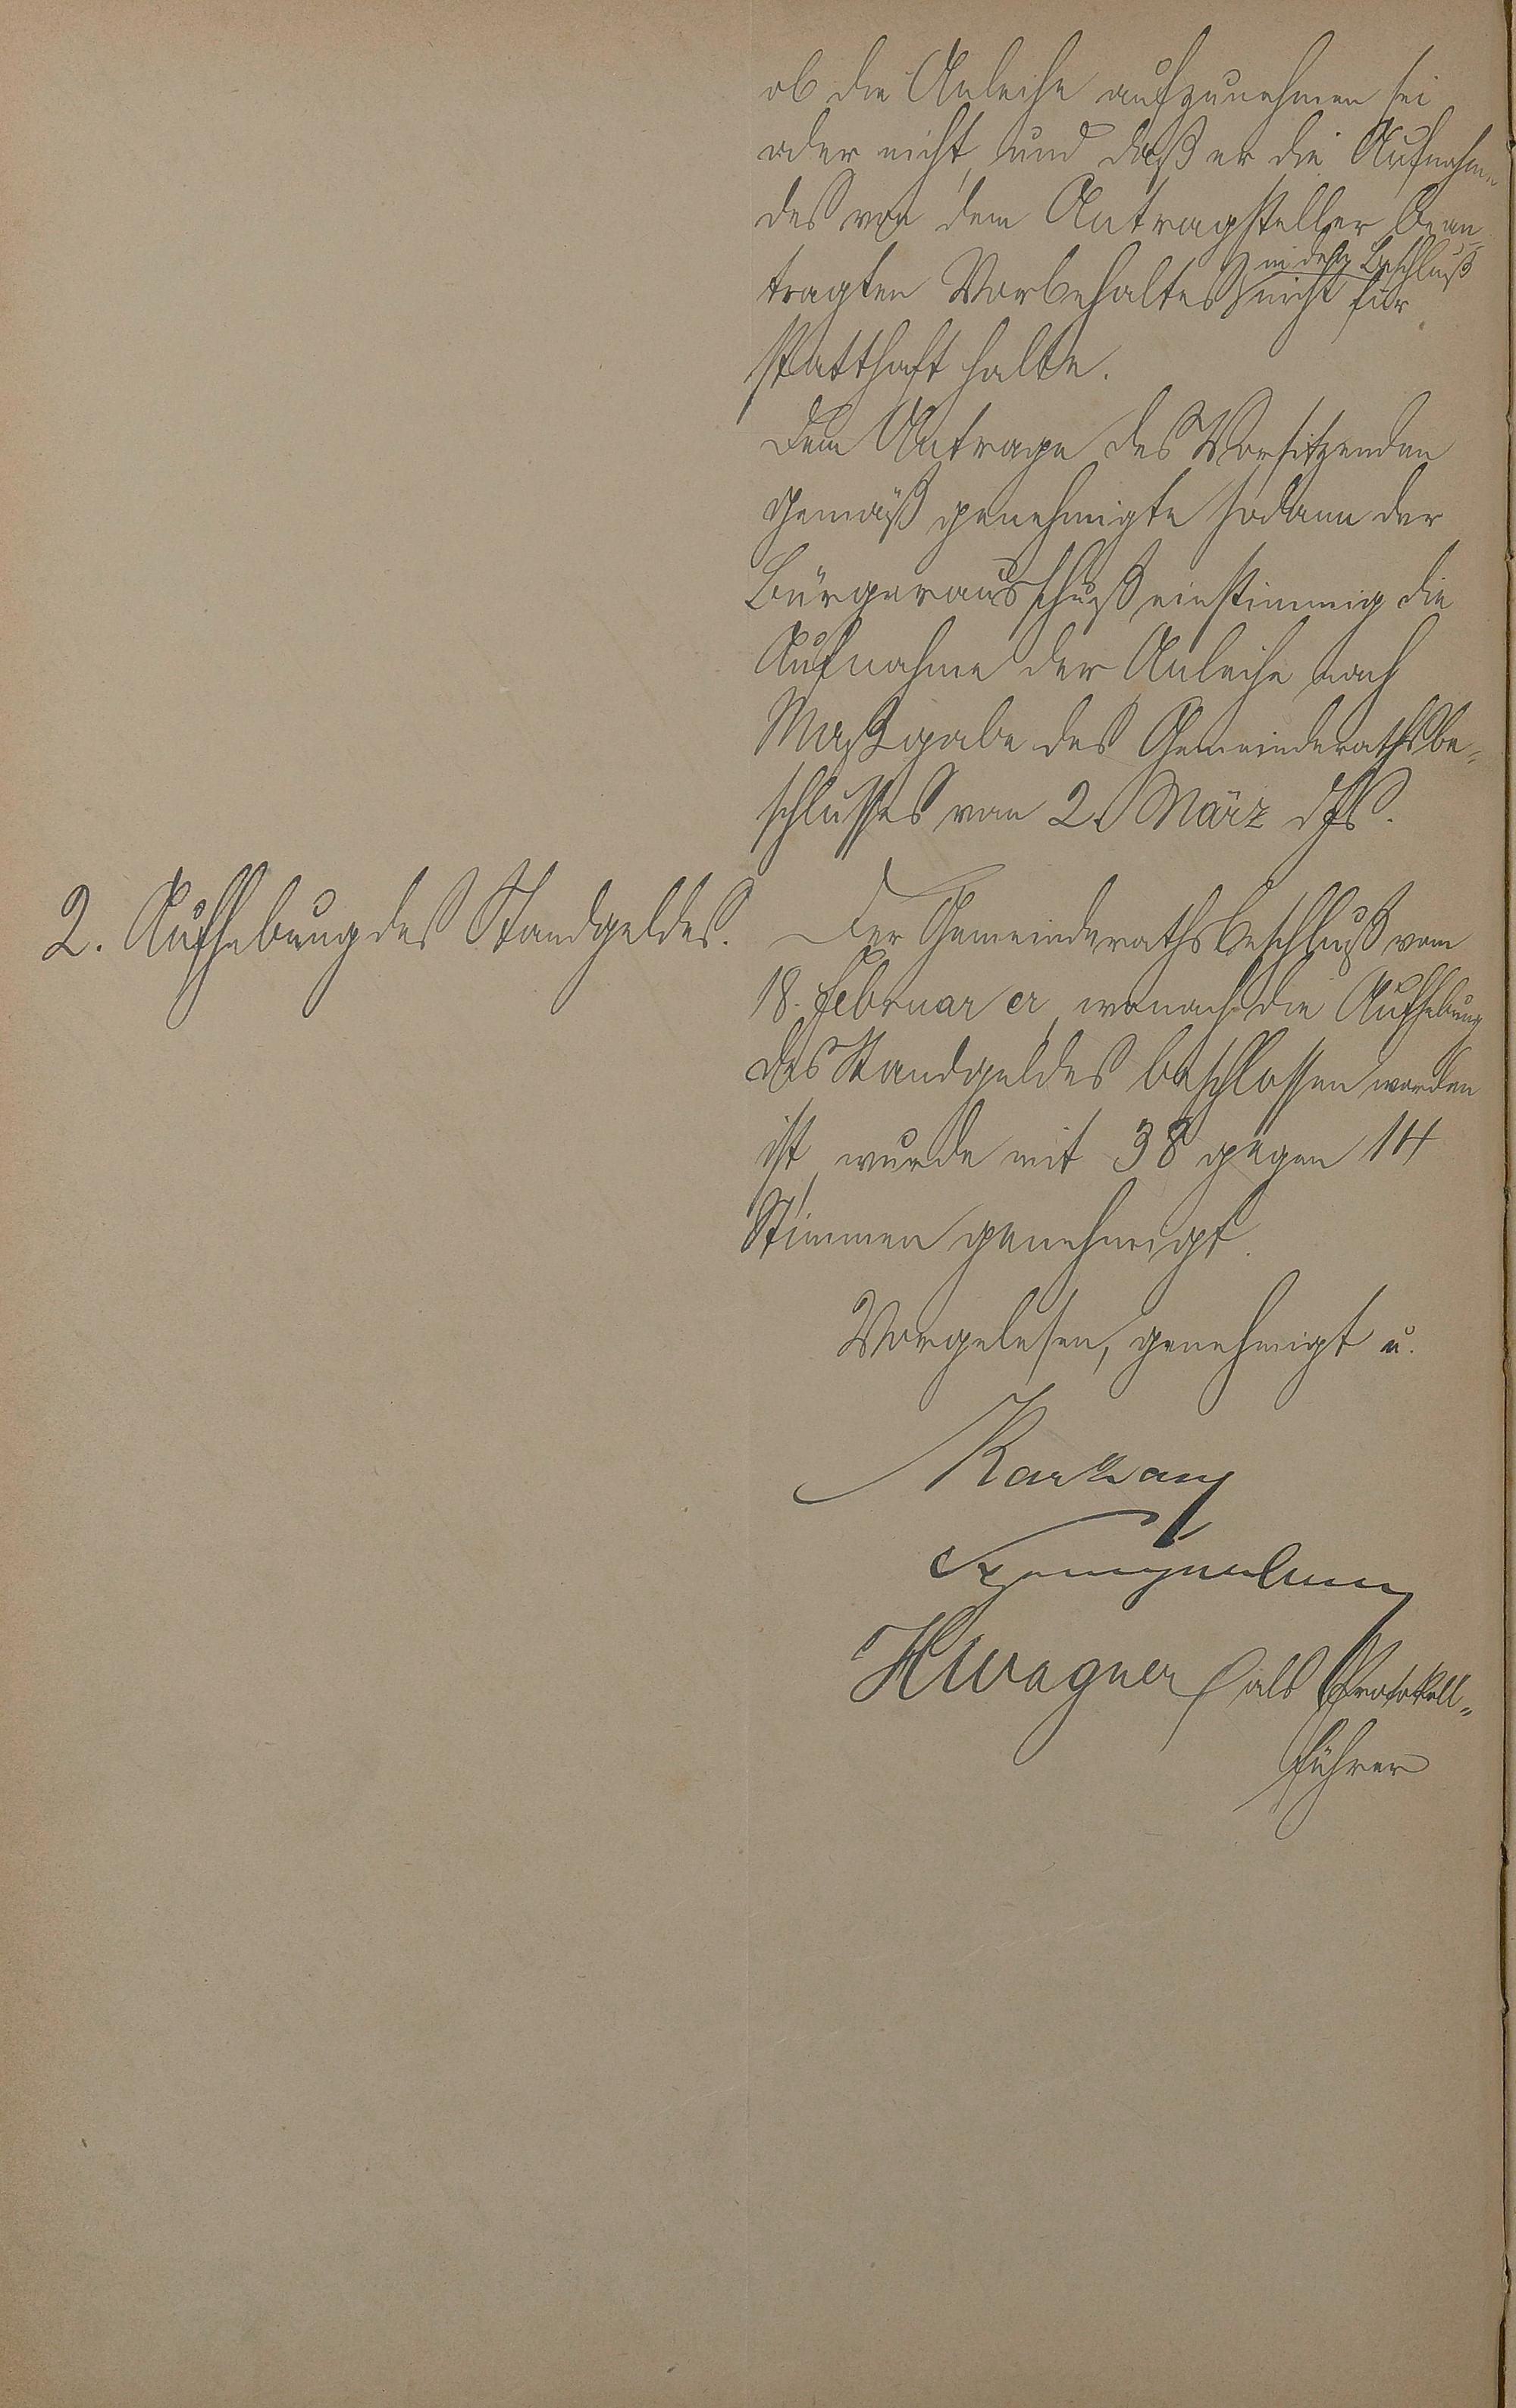 ob die Anleihe aufzunehmen sei
oder nicht, und daß er die Aufnahme
des von dem Antragsteller bean-
tragten Vorbehaltes in den Beschluß nicht für
statthaft halte.
Dem Antrage des Vorsitzenden
gemäß genehmigte sodann der
Bürgerausschuß einstimmig die
Aufnahme der Anleihe nach
Maßgabe des Gemeinderathsbe-
schlusses vom 2. März dJs.
2. Aufhebung des Standgeldes.
Der Gemeinderathsbeschluß vom
18. Februar cr, wonach die Aufhebung
des Standgeldes beschlossen worden
ist, wurde mit 38 gegen 14
Stimmen genehmigt.
Vorgelesen, genehmigt u.
HWagner als Protokoll-
führer